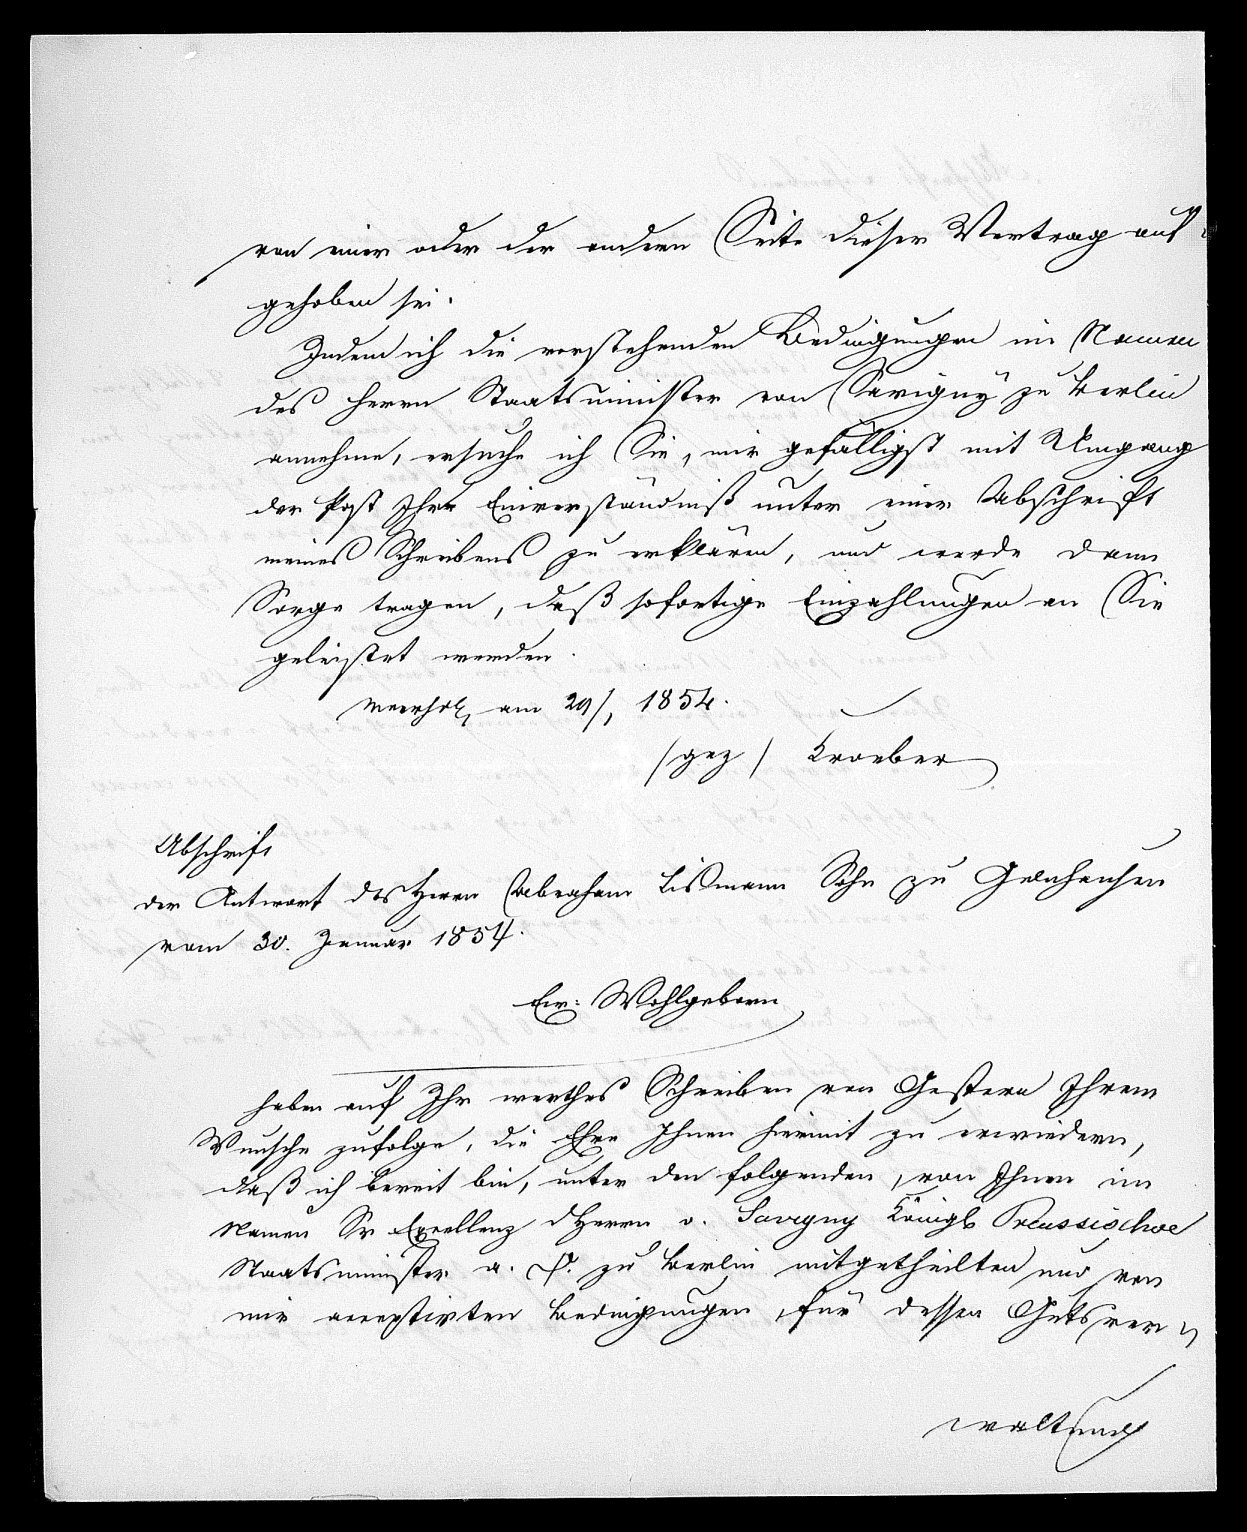 von einer oder der andern Seite dieser Vertrag auf-
gehoben sei.
Indem ich die vorstehenden Bedingungen im Namen
des Herrn Staatsminister von Savigny zu Berlin
annehme, ersuche ich Sie, mir gefälligst mit Umgang
der Post Ihr Einverständniß unter einer Abschrift
meines Schreibens zu erklären, und werde dann
Sorge tragen, daß sofortige Einzahlungen an Sie
geleistet werden.
Meerholz am 29/1 1854.
/gez/ Kroeber
Abschrift
der Antwort des Herrn Abraham Lismann Sohn zu Gelnhausen
vom 30. Januar 1854.
Ew: Wohlgeborn
habe auf Ihr werthes Schreiben von Gestern Ihrem
Wunsche zufolge, die Ehre Ihnen hiermit zu erwiedern,
daß ich bereit bin, unter den folgenden, von Ihnen im
Namen Sr Excellenz dHerrn v. Savigny Königl Preussischer
Staatsminister a. D. zu Berlin mitgetheilten und von
mir acceptirten Bedingungen, für dessen Gutsver-
waltung